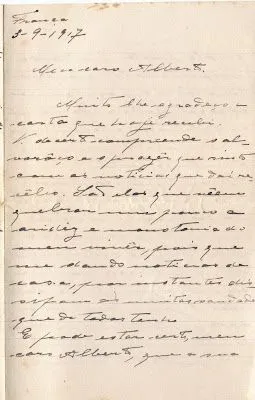 França
3-9-1917
Meu caro Alberto.
Muito lhe agradeço a
carta que hoje recebi.
V. decerto comprehende
o prazer que sinto
com as noticias que d'ahi re-
cebo. São elas que vêem
quebrar um pouco a
aridez e monotonia do
meu viver, pois que
me dando noticias de
casa, por instantes dis-
sipam as muitas saudades
que de todos tenho.
E pode estar certo, meu
caro Alberto, que a sua